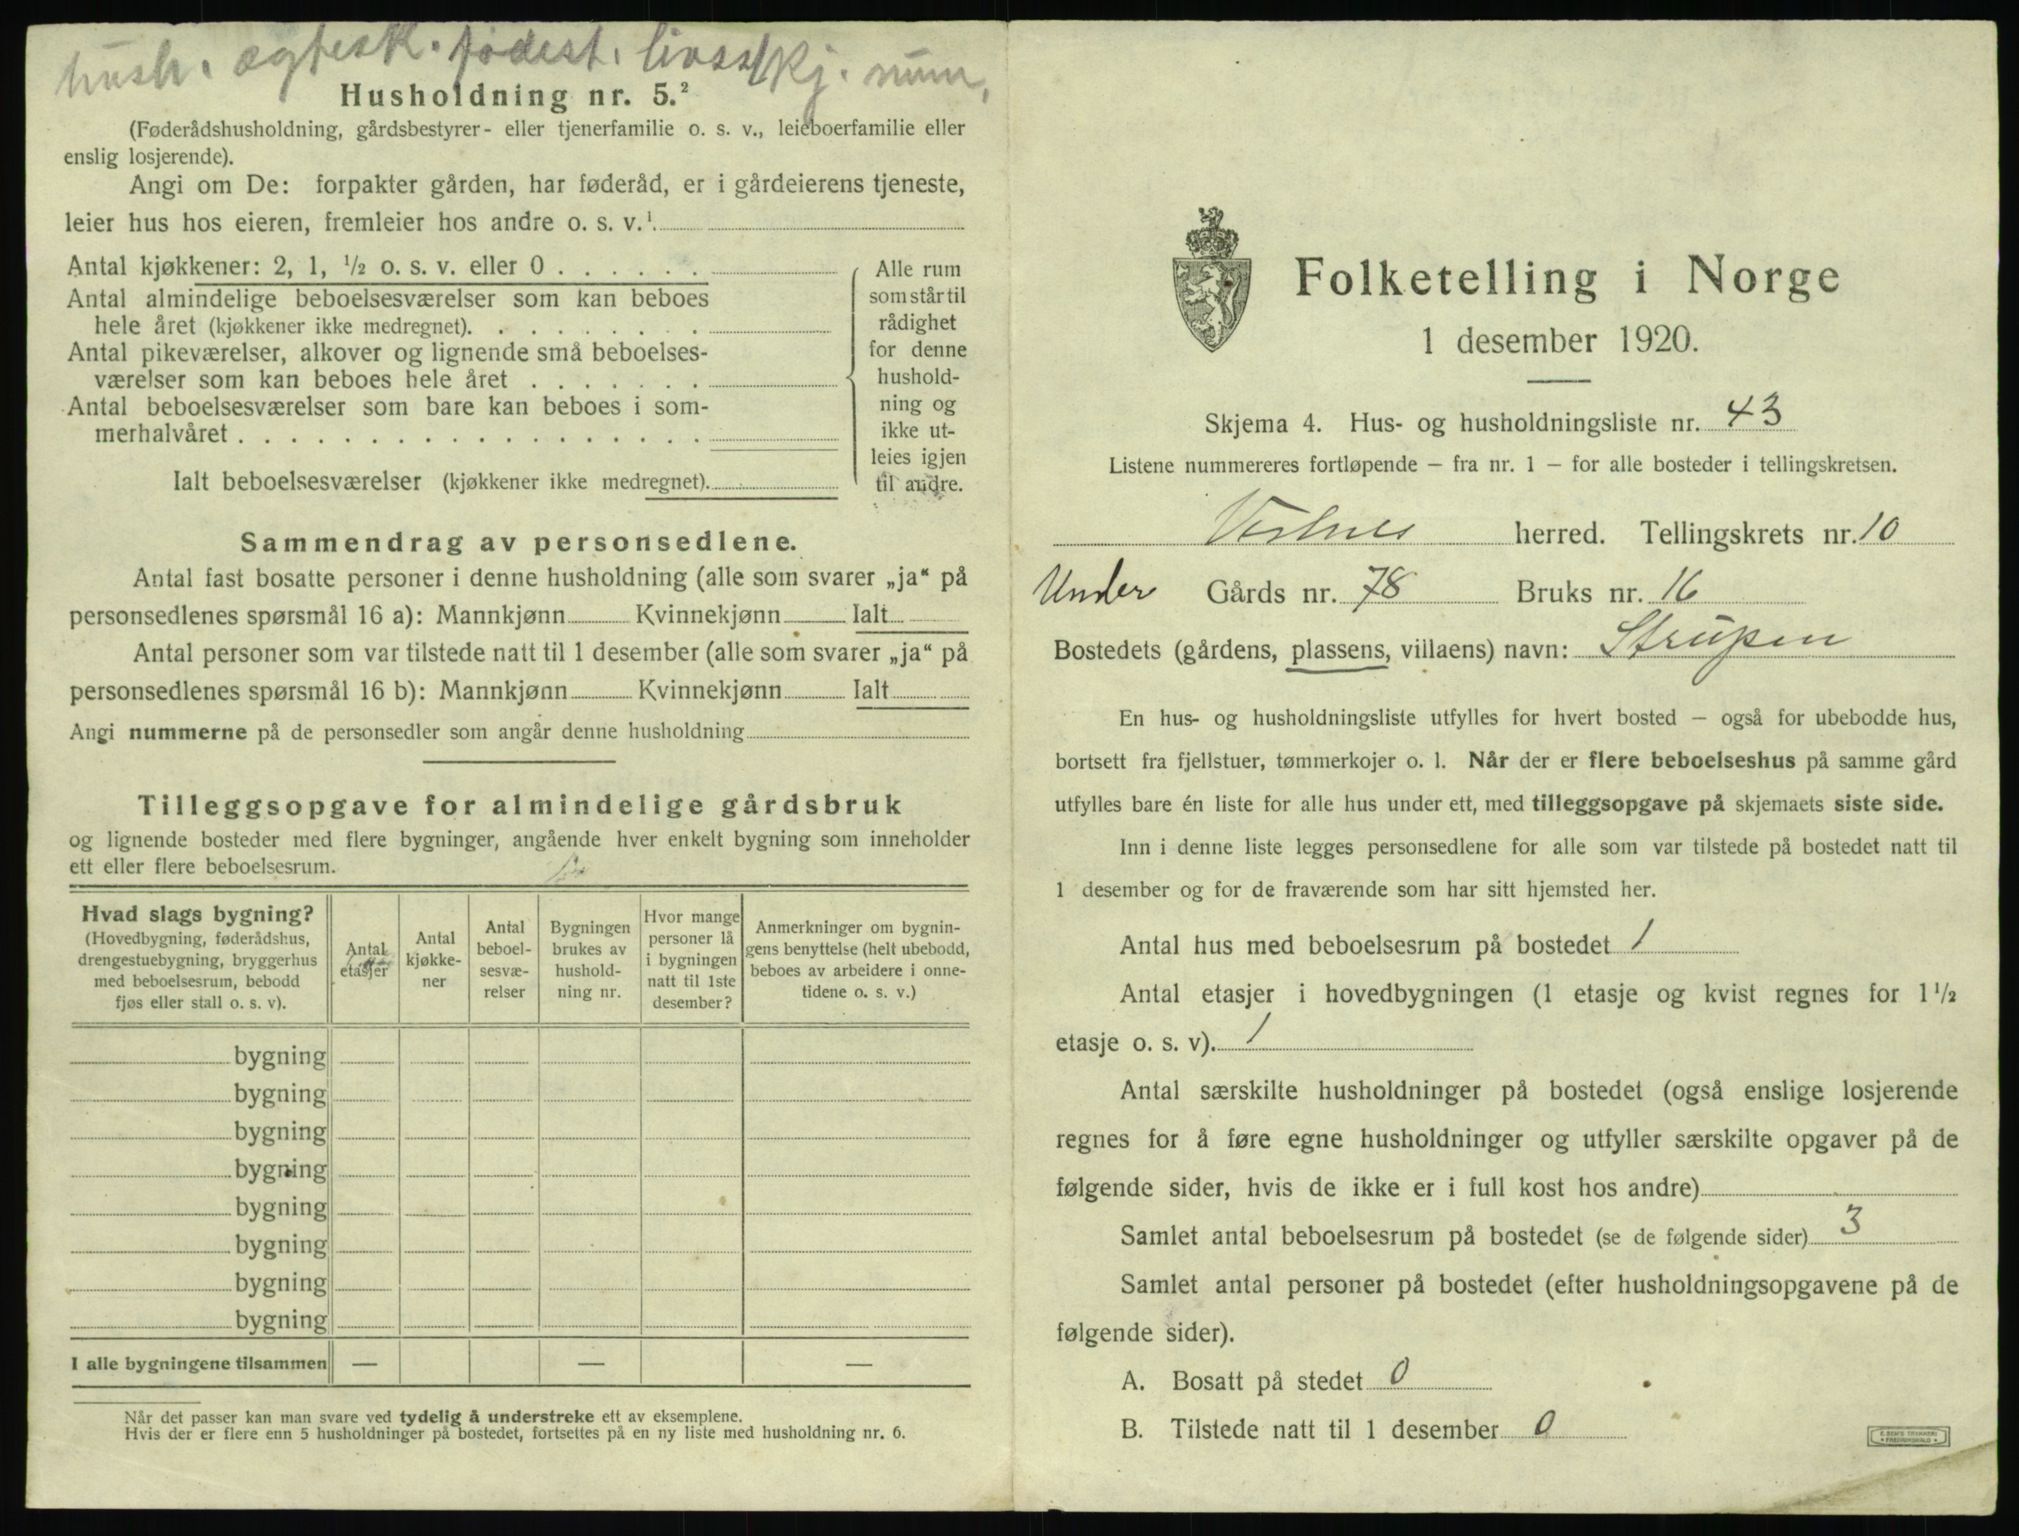 hush. ægtesk. fødest. livss/kj. num.
Husholdning nr. 5.²
(Føderådshusholdning, gårdsbestyrer- eller tjenerfamilie o. s. v., leieboerfamilie eller
enslig losjerende).
Angi om De: forpakter gården, har føderåd, er i gårdeierens tjeneste,
leier hus hos eieren, fremleier hos andre o. s. v.¹
Antal kjøkkener: 2, 1, ½ o. s. v. eller 0 . . . . . .
Antal almindelige beboelsesværelser som kan beboes
hele året (kjøkkener ikke medregnet). . . . . . . . .
Antal pikeværelser, alkover og lignende små beboelses-
værelser som kan beboes hele året . . . . . . .
Antal beboelsesværelser som bare kan beboes i som-
merhalvåret . . . . . . . . . . . . . . . . . .
Ialt beboelsesværelser (kjøkkener ikke medregnet).
Alle rum
som står til
rådighet
for denne
hushold-
ning og
ikke ut-
leies igjen
til andre.
Sammendrag av personsedlene.
Antal fast bosatte personer i denne husholdning (alle som svarer „ja“ på
personsedlenes spørsmål 16 a): Mannkjønn Kvinnekjønn Ialt
Antal personer som var tilstede natt til 1 desember (alle som svarer „ja“ på
personsedlenes spørsmål 16 b): Mannkjønn Kvinnekjønn Ialt
Angi nummerne på de personsedler som angår denne husholdning
Tilleggsopgave for almindelige gårdsbruk
og lignende bosteder med flere bygninger, angående hver enkelt bygning som inneholder
ett eller flere beboelsesrum.
Hvad slags bygning?
(Hovedbygning, føderådshus,
drengestuebygning, bryggerhus
med beboelsesrum, bebodd
fjøs eller stall o. s. v).
Antal
etasjer
Antal
kjøkke-
ner
Antal
beboel-
sesvæ-
relser
Bygningen
brukes av
hushold-
ning nr.
Hvor mange
personer lå
i bygningen
natt til 1ste
desember?
Anmerkninger om bygnin-
gens benyttelse (helt ubebodd,
beboes av arbeidere i onne-
tidene o. s. v.)
bygning
bygning
bygning
bygning
bygning
bygning
bygning
bygning
I alle bygningene tilsammen — — —
Når det passer kan man svare ved tydelig å understreke ett av eksemplene.
Hvis der er flere enn 5 husholdninger på bostedet, fortsettes på en ny liste med husholdning nr. 6.
Folketelling i Norge
1 desember 1920.
Skjema 4. Hus- og husholdningsliste nr. 43
Listene nummereres fortløpende – fra nr. 1 – for alle bosteder i tellingskretsen.
Vestnes herred. Tellingskrets nr. 10
Under Gårds nr. 78 Bruks nr. 16
Bostedets (gårdens, plassens, villaens) navn: Strupen
En hus- og husholdningsliste utfylles for hvert bosted – også for ubebodde hus,
bortsett fra fjellstuer, tømmerkojer o. l. Når der er flere beboelseshus på samme gård
utfylles bare én liste for alle hus under ett, med tilleggsopgave på skjemaets siste side.
Inn i denne liste legges personsedlene for alle som var tilstede på bostedet natt til
1 desember og for de fraværende som har sitt hjemsted her.
Antal hus med beboelsesrum på bostedet 1
Antal etasjer i hovedbygningen (1 etasje og kvist regnes for 1½
etasje o. s. v). 1
Antal særskilte husholdninger på bostedet (også enslige losjerende
regnes for å føre egne husholdninger og utfyller særskilte opgaver på de
følgende sider, hvis de ikke er i full kost hos andre)
Samlet antal beboelsesrum på bostedet (se de følgende sider) 3
Samlet antal personer på bostedet (efter husholdningsopgavene på de
følgende sider).
A. Bosatt på stedet 0
B. Tilstede natt til 1 desember 0